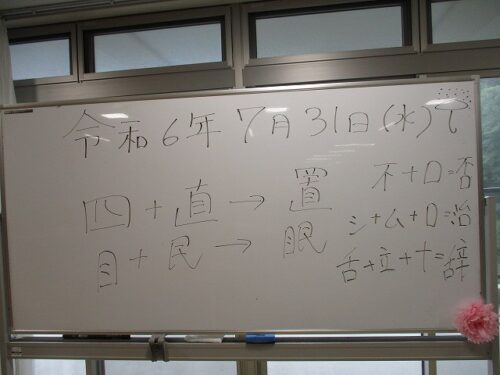 令和6年 7月31日(水)
四+直→置
目+民→眠
不+口=否
シ+ム+口=治
舌+立+十=辞